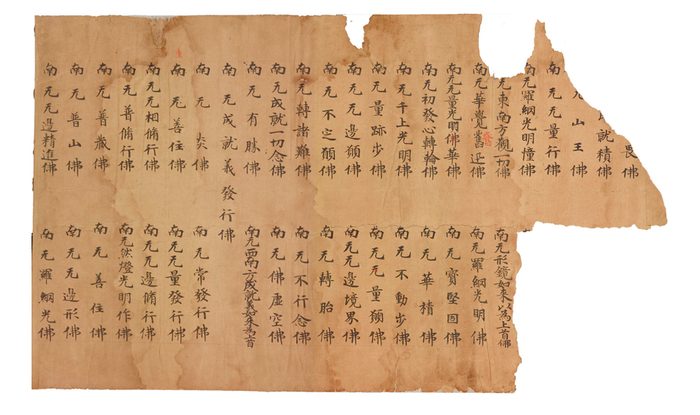 畏佛
就積佛
山王佛
无无量行佛
无羅網光明幢佛
无東南方觀一切佛 南无形鏡如來以為上首佛
南无華覺奮迅佛 南无羅網光明佛
南无无量光明佛華佛 南无寶堅固佛
南无初發心轉輪佛 南无華精佛
南无千上光明佛 南无不動步佛
南无量跡步佛 南无无量願佛
南无无邊願佛 南无无邊境界佛
南无不定願佛 南无轉胎佛
南无轉諸難佛 南无不行念佛
南无成就一切念佛 南无佛虛空佛
南无有勝佛 南无西南方成就義如來為首
南无成就義發行佛
南无炎佛 南无常發行佛
南无善住佛 南无无量發行佛
南无无相脩行佛 南无无邊脩行佛
南无普脩行佛 南无然燈光明作佛
南无普藏佛 南无善住佛
南无普山佛 南无无邊形佛
南无无邊精進佛 南无羅網光佛